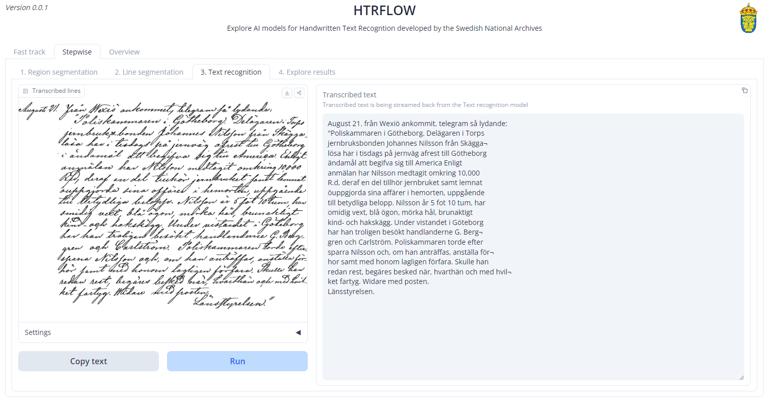 Version 0.0.1
HTRFLOW
Explore AI models for Handwritten Text Recognition developed by the Swedish National Archives
Fast track
Stepwise
Overview
1. Region segmentation
2. Line segmentation
3. Text recognition
4. Explore results
Transcribed lines
August 21. från Wexiö ankommit, telegram så lydande:
"Poliskammaren i Götheborg. Delägaren i Torps
jernbruksbonden Johannes Nilsson från Skägga
lösa har i tisdags på jernväg afrest till Götheborg
i ändamål att begifva sig till America Enligt
anmälan har Nilsson medtagit omkring 10000
Rd, deraf en del tillhör jernbruket samt lemnat
ouppgjorda sina affärer i hemorten, uppgående
till betydliga belopp. Nilsson är 5 fot 10 tum, har
smidig vext, blå ögon, mörka hår, brunaktigt
kind- och hakskägg. Under vistandet i Götheborg
har han troligen besökt handlanderne G. Berg-
gren och Carlström. Poliskammaren torde efter
spana Nilsson och, om han anträffas, anställa för-
hör samt med honom lagligen förfara. Skulle han
redan rest, begäres besked när, hvarthän och med hvil-
ket fartyg. Widare med posten.
Länsstyrelsen."
Settings
Copy text
Run
Transcribed text
Transcribed text is being streamed back from the Text recognition model
August 21. från Wexiö ankommit, telegram så lydande:
"Poliskammaren i Götheborg. Delägaren i Torps
jernbruksbonden Johannes Nilsson från Skägga¬
lösa har i tisdags på jernväg afrest till Götheborg
ändamål att begifva sig till America Enligt
anmälan har Nilsson medtagit omkring 10.000
R.d, deraf en del tillhör jernbruket samt lemnat
öuppgjorda sina affärer i hemorten, uppgående
till betydliga belopp. Nilsson är 5 fot 10 tum, har
omidig vext, blå ögon, mörka hål, brunaktigt
kind- och hakskägg. Under vistandet i Göteborg
har han troligen besökt handlanderne G. Berg¬
gren och Carlström. Poliskamaren torde efter
sparra Nilsson och, om han anträffas, anställa för¬
hor samt med honom lagligen förfara. Skulle han
redan rest, begäres besked när, hvarthän och med hvil¬
ket fartyg. Widare med posten.
Länsstyrelsen.